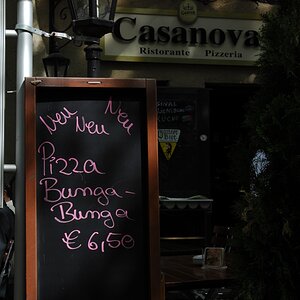 Casanova
Ristorante Pizzeria
Neu Neu Neu
Pizza
Bunga-
Bunga
€ 6,50